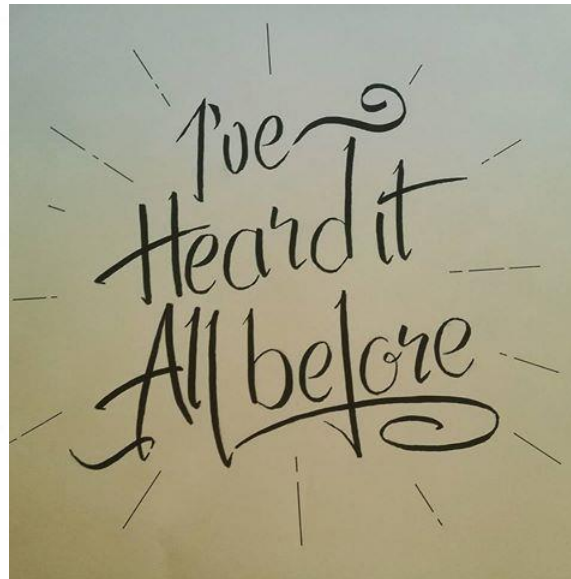 I've
Heard it
All before